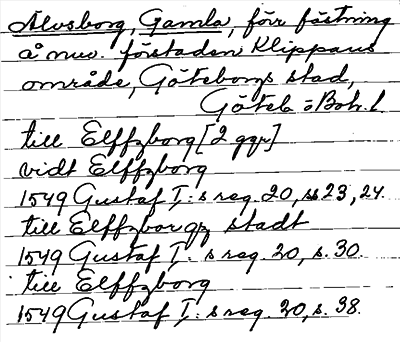 Älvsborg, Gamla, förr fästning
å nuv. förstaden Klippans
område, Göteborgs stad,
Göteb o Boh. l
till Elffzborg [2 ggr]
vidt Elffzborg
1549 Gustaf I:s reg. 20, ss 23, 24.
till Elffzborgz stadt
1549 Gustaf I:s reg. 20, s. 30.
till Elffzborg
1549 Gustaf I:s reg. 20, s. 38.